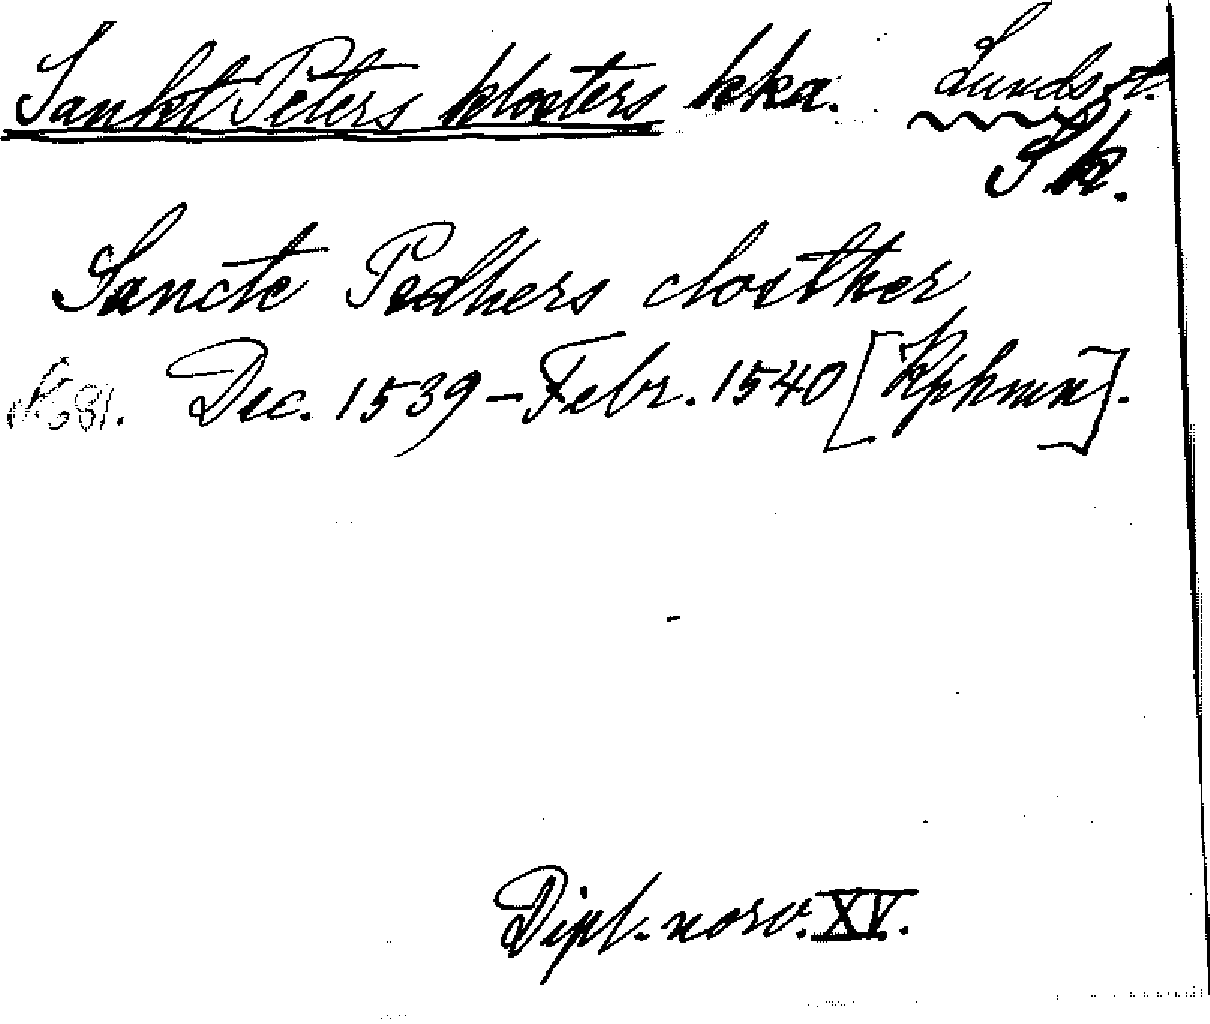 Sankt Peters klosters kka. Lunds st.
Sk.
Sancte Pedhers closther
s. 681. Dec. 1539 – Febr. 1540 [Kphmn].
Dipl. norv. XV.